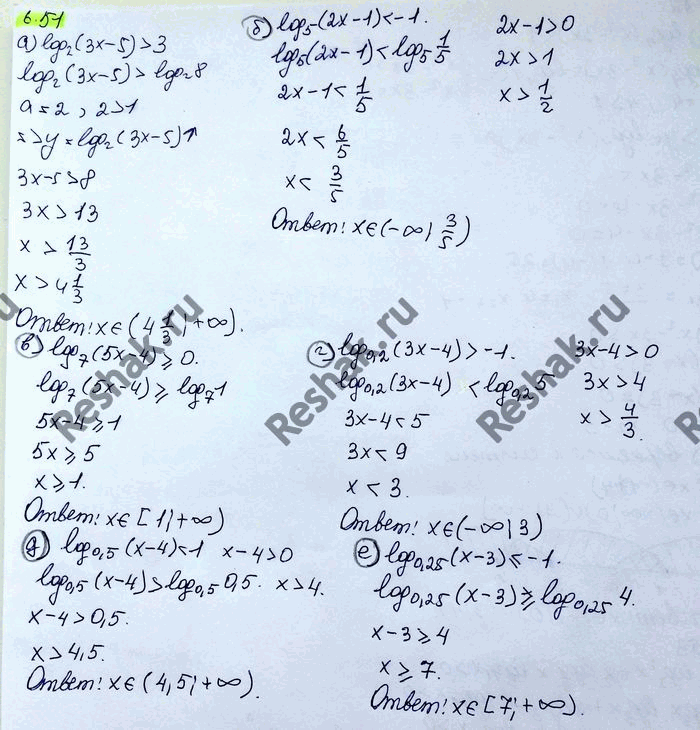 6.51
а) log₂(3x-5)>3
log₂(3x-5)>log₂8
a=2, 2>1
=>y=log₂(3x-5)↑
3x-5>8
3x>13
x > 13/3
x>4 1/3
Ответ: x∈(4 1/3; +∞).
б) log₅(2x-1)<-1.
log₅(2x-1)<log₅ 1/5
2x-1< 1/5
2x< 6/5
x< 3/5
Ответ: x∈(-∞; 3/5)
2x-1>0
2x>1
x> 1/2
в) log₇(5x-4)≥0.
log₇(5x-4)≥log₇1
5x-4≥1
5x≥5
x≥1.
Ответ: x∈[1; +∞)
г) log₀,₂(3x-4)>-1.
log₀,₂(3x-4) <log₀,₂5
3x-4<5
3x<9
x<3.
Ответ: x∈(-∞; 3)
3x-4>0
3x>4
x> 4/3.
д) log₀,₅(x-4)<1 x-4>0
log₀,₅(x-4)>log₀,₅0,5. x>4.
x-4>0,5.
x>4,5.
Ответ: x∈(4,5; +∞).
е) log₀,₂₅(x-3)≤-1.
log₀,₂₅(x-3)≥log₀,₂₅4.
x-3≥4
x≥7.
Ответ: x∈[7; +∞).
Reshak.ru
Reshak.ru